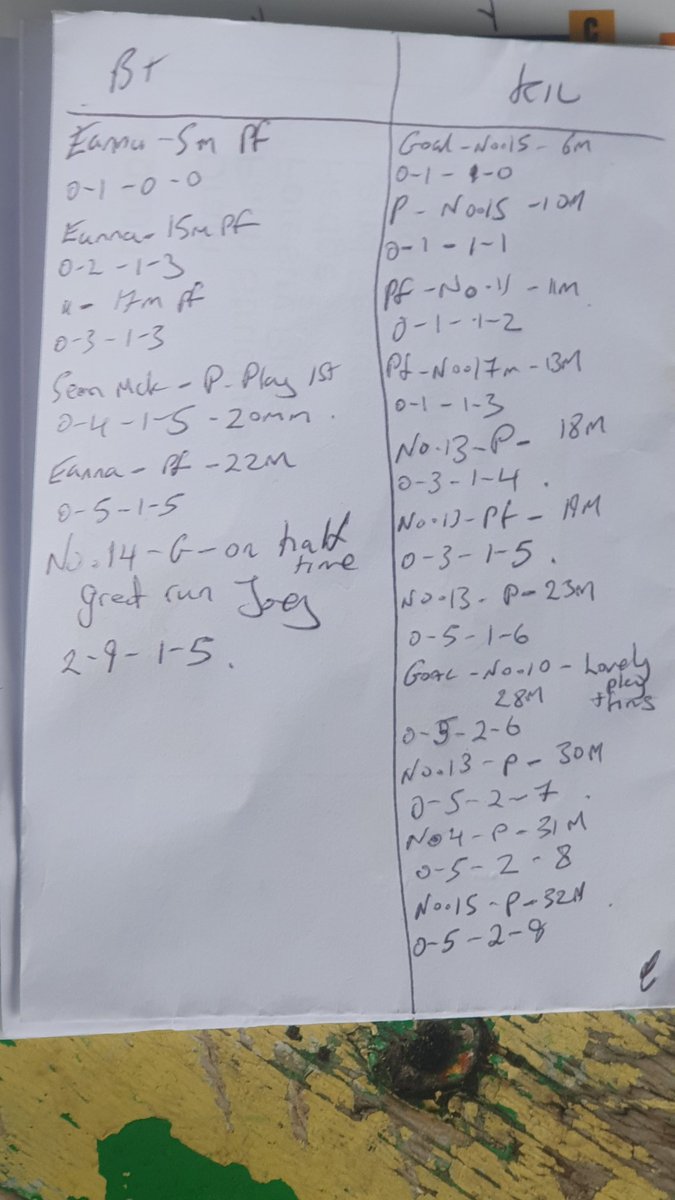 C
BT
Eanna - 5m Pf
0-1-0-0
Eanna - 15m Pf
0-2-1-3
u - 17m Pf
0-3-1-3
Sean Mck - P- Play 1st
0-4-1-5-20mm.
Eanna - Pf - 22M
0-5-1-5
No.14 - G - on half
time
great run Joey
2-9-1-5.
KIL
Goal - No.15 - 6m
0-1-1-0
P - No.15 - 10M
0-1-1-1
Pf - No.11 - 11M
0-1-1-2
Pf - No.17m - 13M
0-1-1-3
No.13 - P - 18M
0-3-1-4.
No.13 - Pf - 19M
0-3-1-5.
No.13 - P - 23M
0-5-1-6
Goal - No.10 - Lovely
28M play
0-5-2-6
No.13 - P - 30M
0-5-2-7.
No 4 - P - 31M
0-5-2-8
No.15 - P - 32M.
0-5-2-9